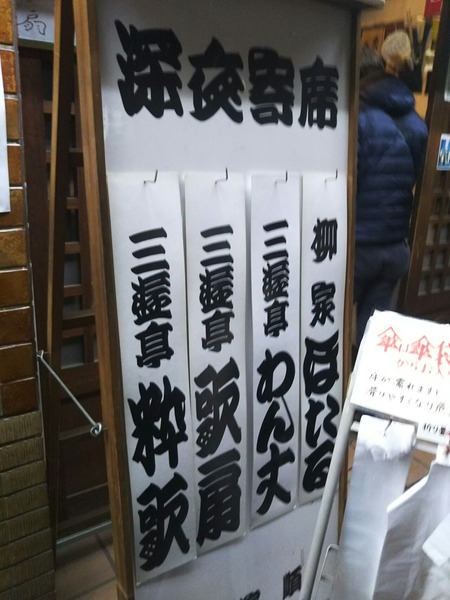 深夜寄席
柳家 ほたる
三遊亭 わん丈
三遊亭 歌扇
三遊亭 粋歌
順
扇
傘は傘
床が濡れます
滑りやすくなり